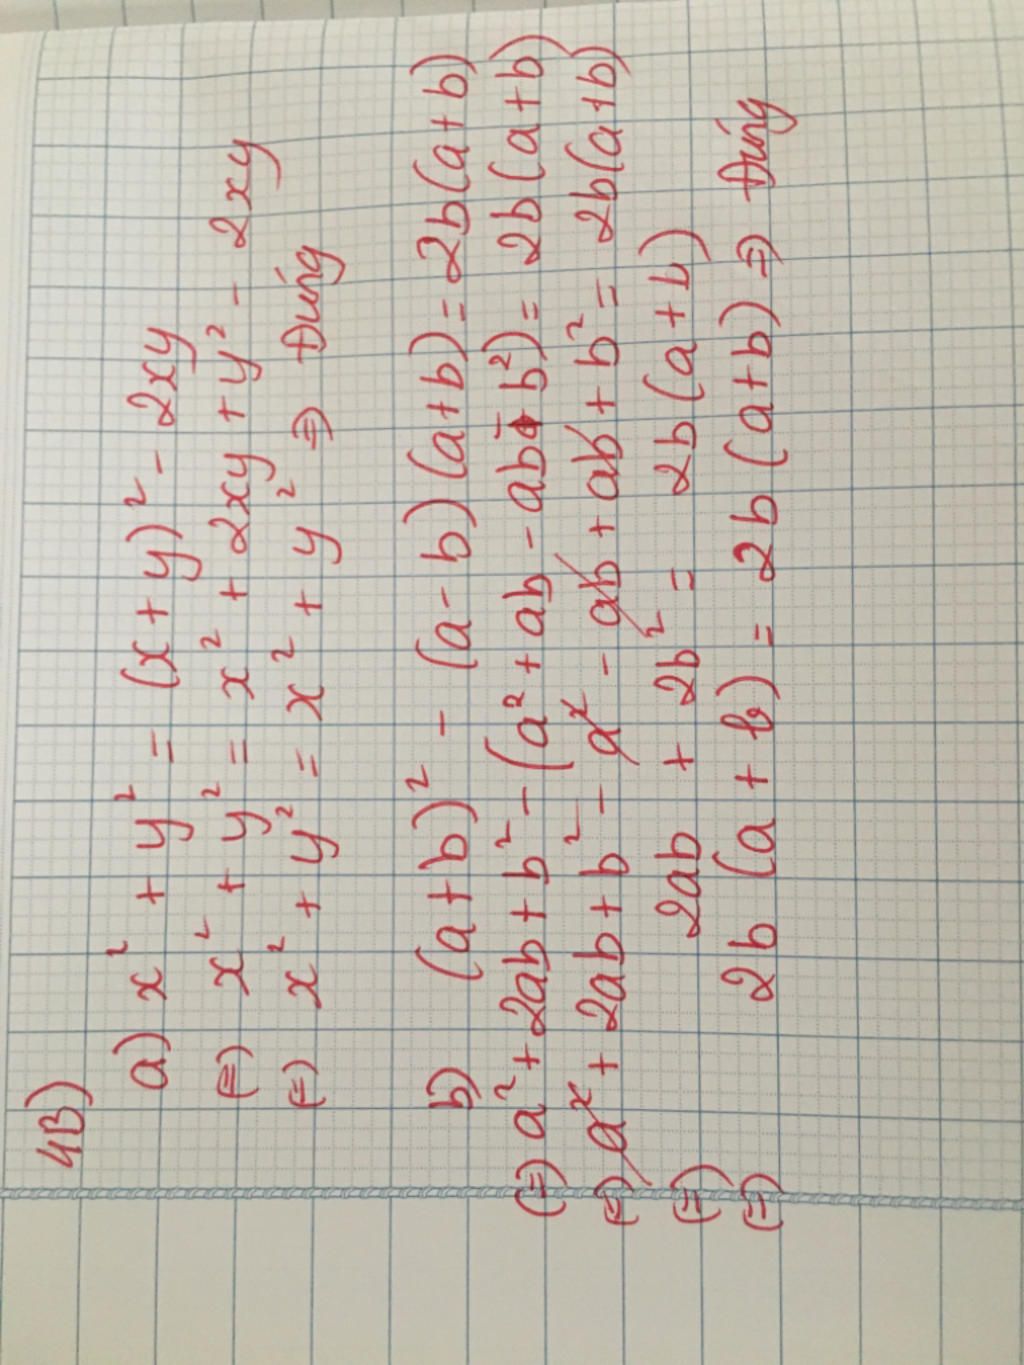 4B)
a) x² + y² = (x + y)² - 2xy
(=) x² + y² = x² + 2xy + y² - 2xy
(=) x² + y² = x² + y² => Đúng
b) (a+b)² - (a-b)(a+b) = 2b(a+b)
(=) a² + 2ab + b² - (a² + ab - ab - b²) = 2b(a+b)
(=) a² + 2ab + b² - a² - ab + ab + b² = 2b(a+b)
(=) 2ab + 2b² = 2b(a+b)
(=) 2b(a+b) = 2b(a+b) => Đúng